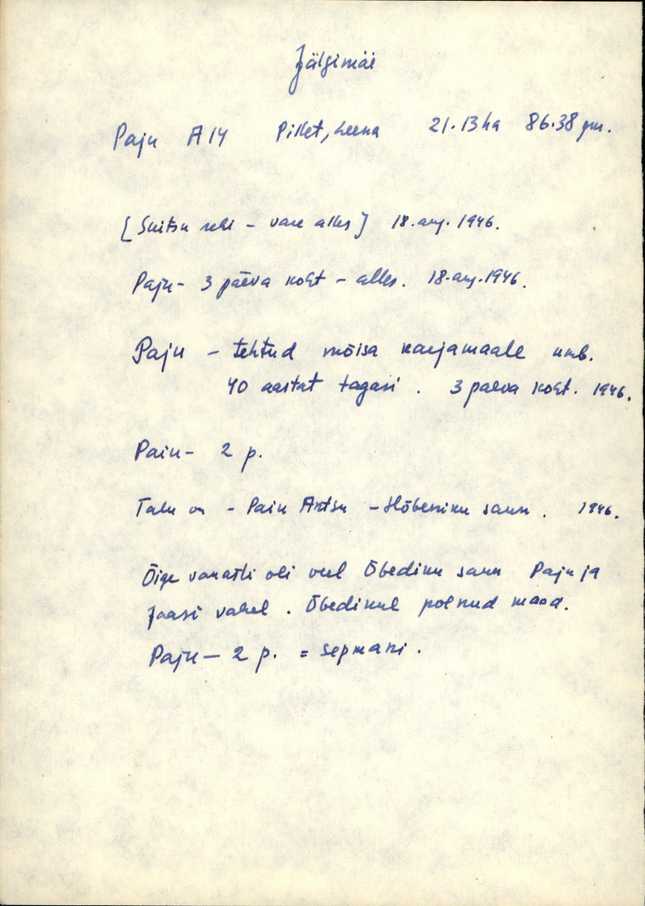 Jälgimäe
Paju A14 Pillet, Leena 21.13 ha 86.38 
[Suitsu rehi - vare alles] 18. aug. 1946.
Paju - 3 päeva koht - alles. 18. aug. 1946.
Paju - tehtud mõisa karjamaale umb.
40 aastat tagasi. 3 päeva koht. 1946.
Paiu - 2 p.
Talu on - Paiu Antsu - Hõbeniku saun. 1946.
Õige vanasti oli veel Õbediku saun Paju ja
Jaasi vahel. Õbedikul polnud maad.
Paju - 2 p. = sepmani.